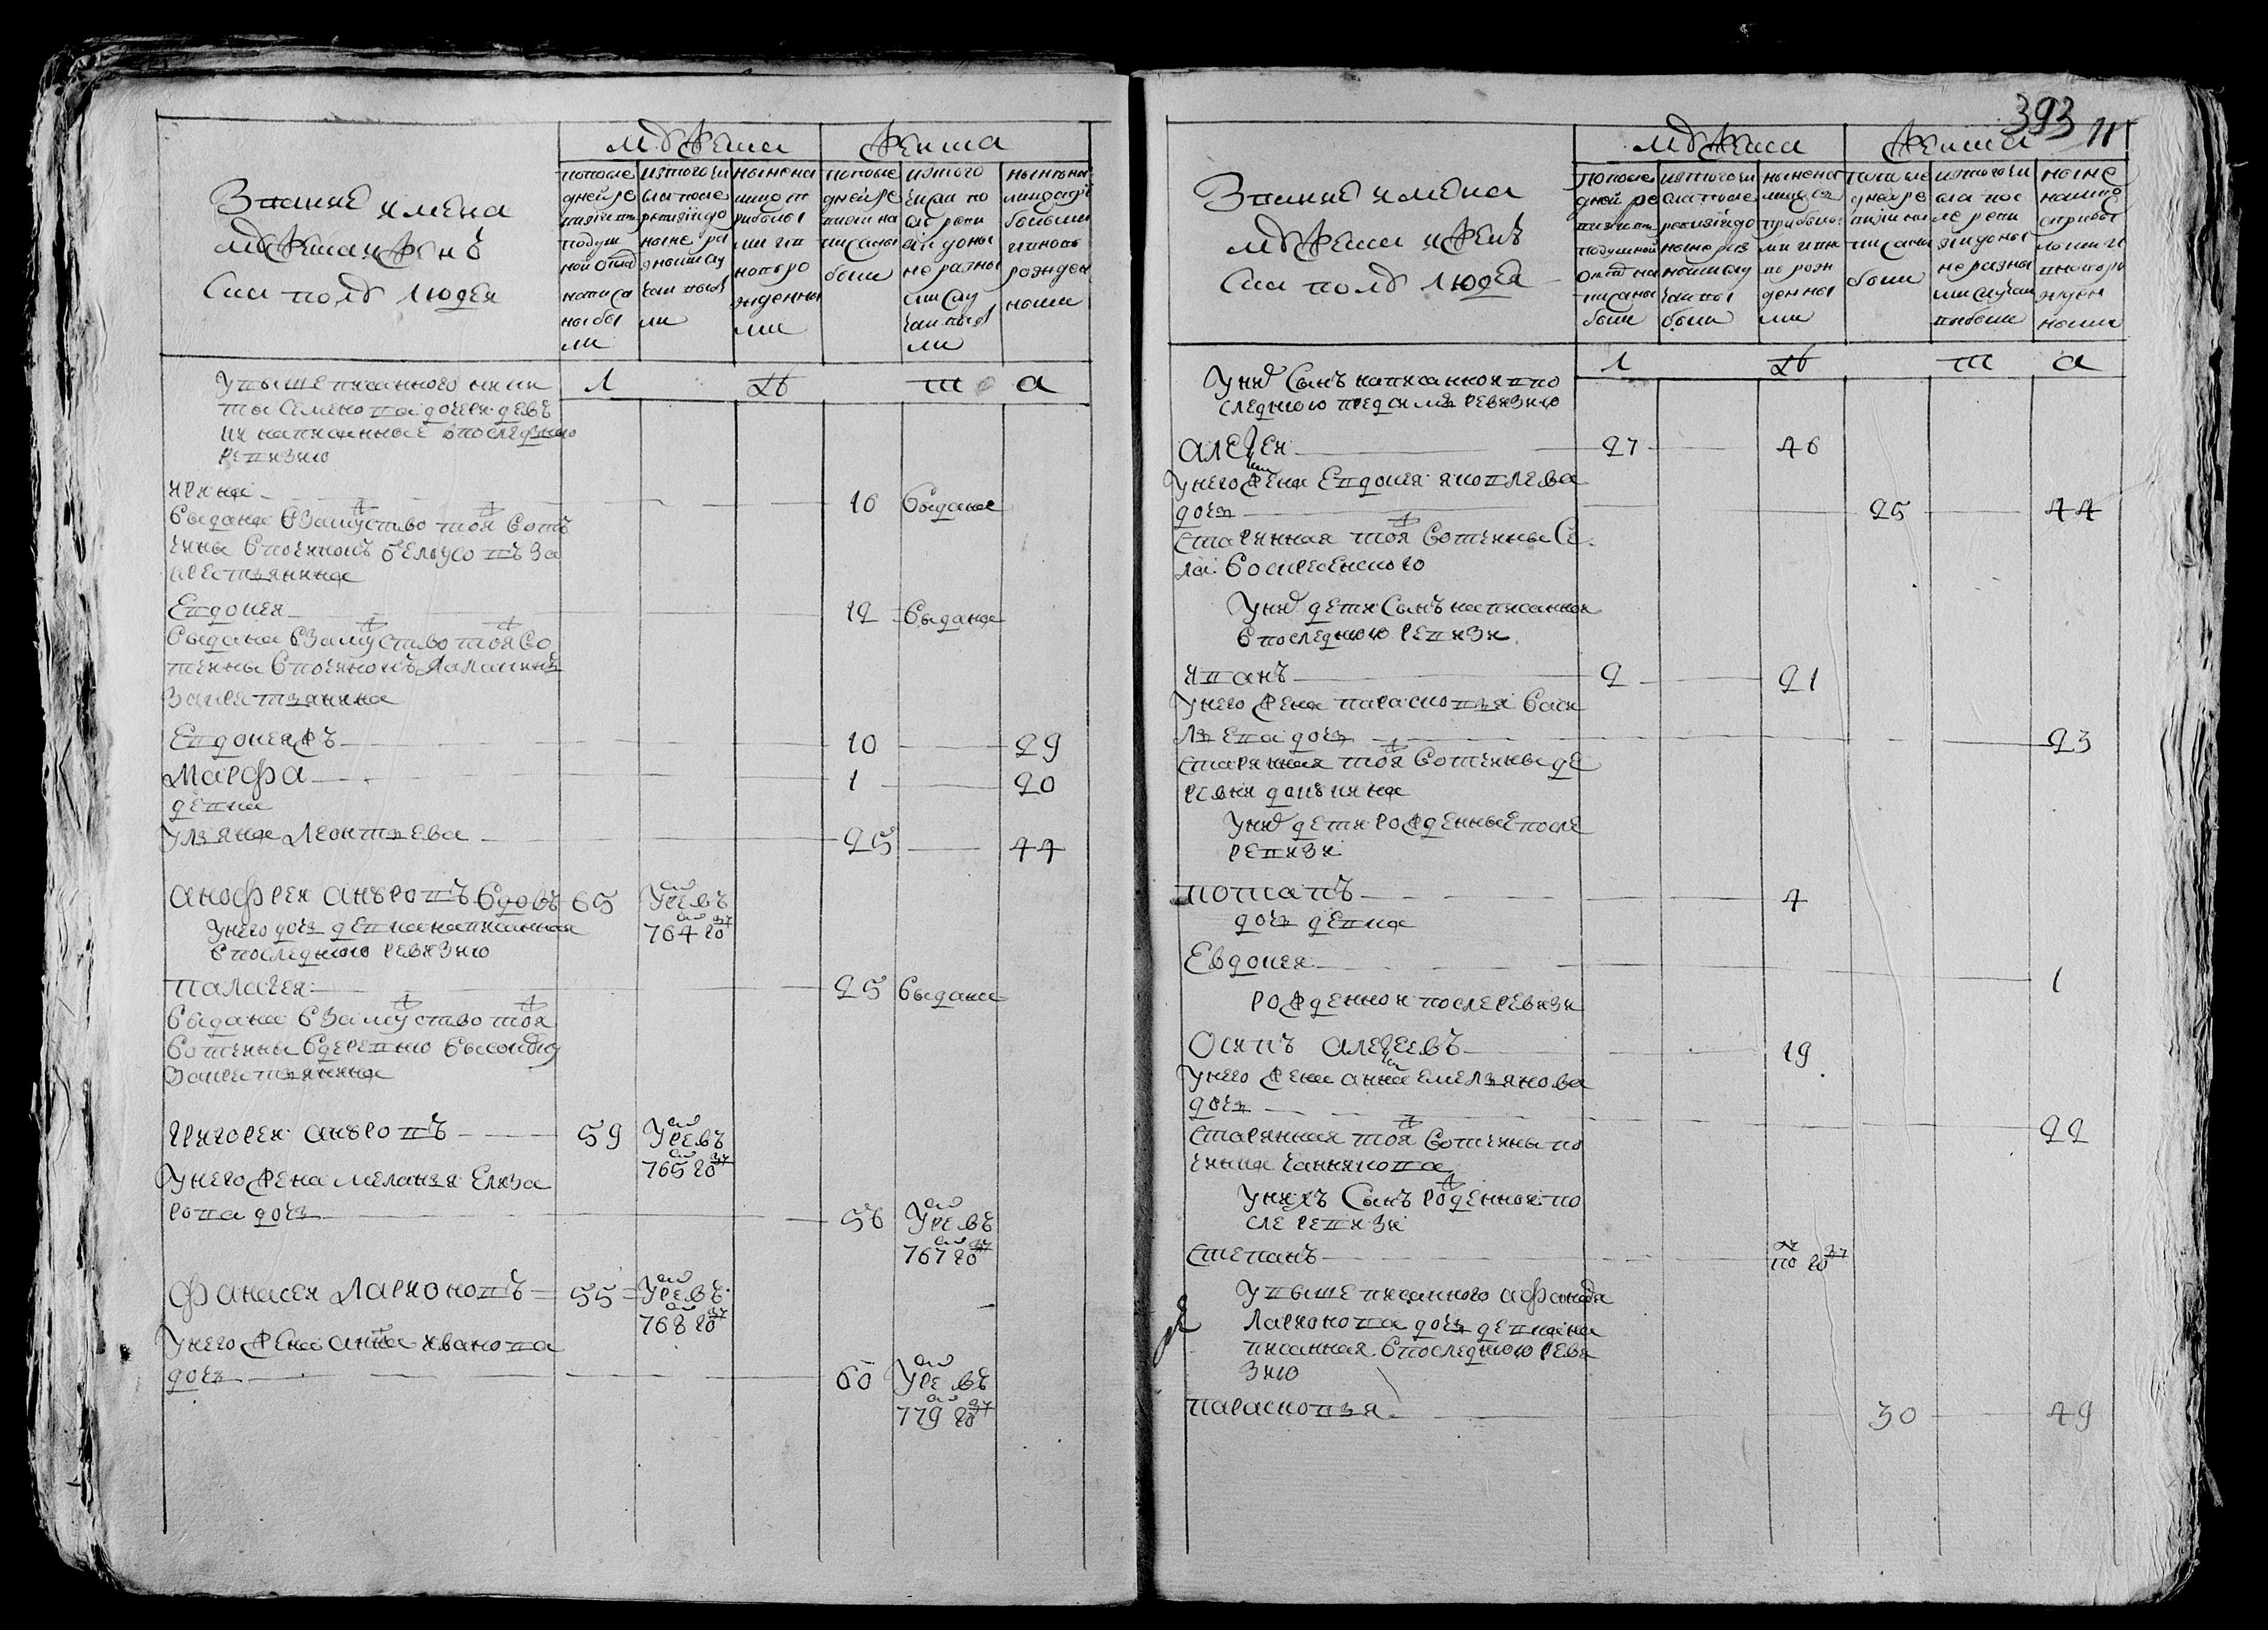 393 11
Звание и имена
мужеска и женъ
ска полу людей
мужеска
женска
по после
дней ре
визии въ
подуш
ной оклад
написа
ны бы
ли
ис того чи
сла после
ревизии до
ныне ра
зными слу
чаи выбы
ли
ныне на
лицо съ
прибылы
ми и в
новь ро
жденны
ми
по после
дней ре
визии на
писаны
были
ис того
числа по
сле реви
зии доны
не разны
ми слу
чаи выбы
ли
ныне на
лицо с при
былыми
и вновь
рожден
ными
Л Ѣ т а
У вышеписанного ники
ты Семенова дочери дев
ки написанные в последнюю
ревизию
Ирина 16 выдана
выдана взамужство тоя вот
чины в починокъ Белоусовъ за
крестьянина
Евдокея 12 выдана
выдана взамужство тоя во
тчины в починокъ
за крестьянина
Евдокея жъ 10 29
Марфа 1 20
девка
Ульяна Леонтьева 25 44
Анофреи Анъровъ вдовъ 65 Умре въ
764 году
У него дочь девка написанная
в последнюю ревизию
Палагея 25 выдана
выдана взамужство тоя
вотчины в деревню
за крестьянина
Григореи Анъровъ 59 Умре въ
765 году
У него жена Меланья Елиза
рова дочь 56 Умре въ
767 году
Фанасеи Ларионовъ 55 Умре въ
768 году
У него жена Анна Иванова
дочь 60 Умре въ
779 году
Звание имена
мужеска и женъ
ска полу людей
мужеска
женска
по после
дней ре
визии въ
подушной
оклад на
писаны
были
ис того чи
сла после
ревизии до
ныне раз
ными слу
чаи вы
были
ныне на
лицо съ
прибылы
ми и вн
ове рож
денны
ми
по после
дней ре
визии на
писаны
были
ис того чи
сла пос
ле реви
зии доны
не разны
ми случаи
выбыли
ныне
налицо
с прибы
лыми и
вновь ро
жден
ными
Л Ѣ т а
У них сынъ написаннои в по
следнюю пред сим ревизию
Алексеи 27 46
У него жена Евдокея Яковлева
дочь 25 44
старинная тоя вотчины се
ла Воскресенского
У них дети сынъ написаннои
в последнюю ревизи
Иванъ 2 21
У него жена Парасковья Васи
льева дочь 23
старинная тоя вотчины де
ревни
У них дети рожденные после
ревизи
Потапъ 4
дочь девка
Евдокея 1
рожденнои после ревизи
Осипъ Алексеевъ 19
У него жена Анна Емельянова
дочь 22
старинная тоя вотчины по
чинка
У нихъ сынъ рожденнои по
сле ревизи
Степанъ по году
У вышеписанного Афанасья
Ларионова дочь девка на
писанная в последнюю реви
зию
Парасковья 30 49